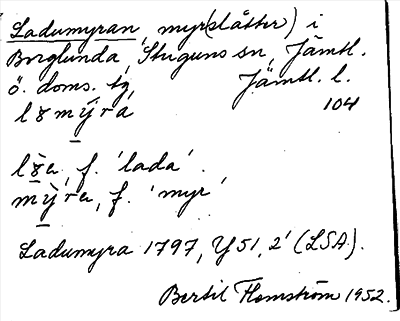 Ladumyran, myr(slåtter) i
Borglunda, Stuguns sn, Jämtl.
ö. doms. tg, Jämtl. l.
104
f. 'lada'.
f. 'myr'
Ladumyra 1797, Y51, 2' (LSA).
Bertil Flemström 1952.